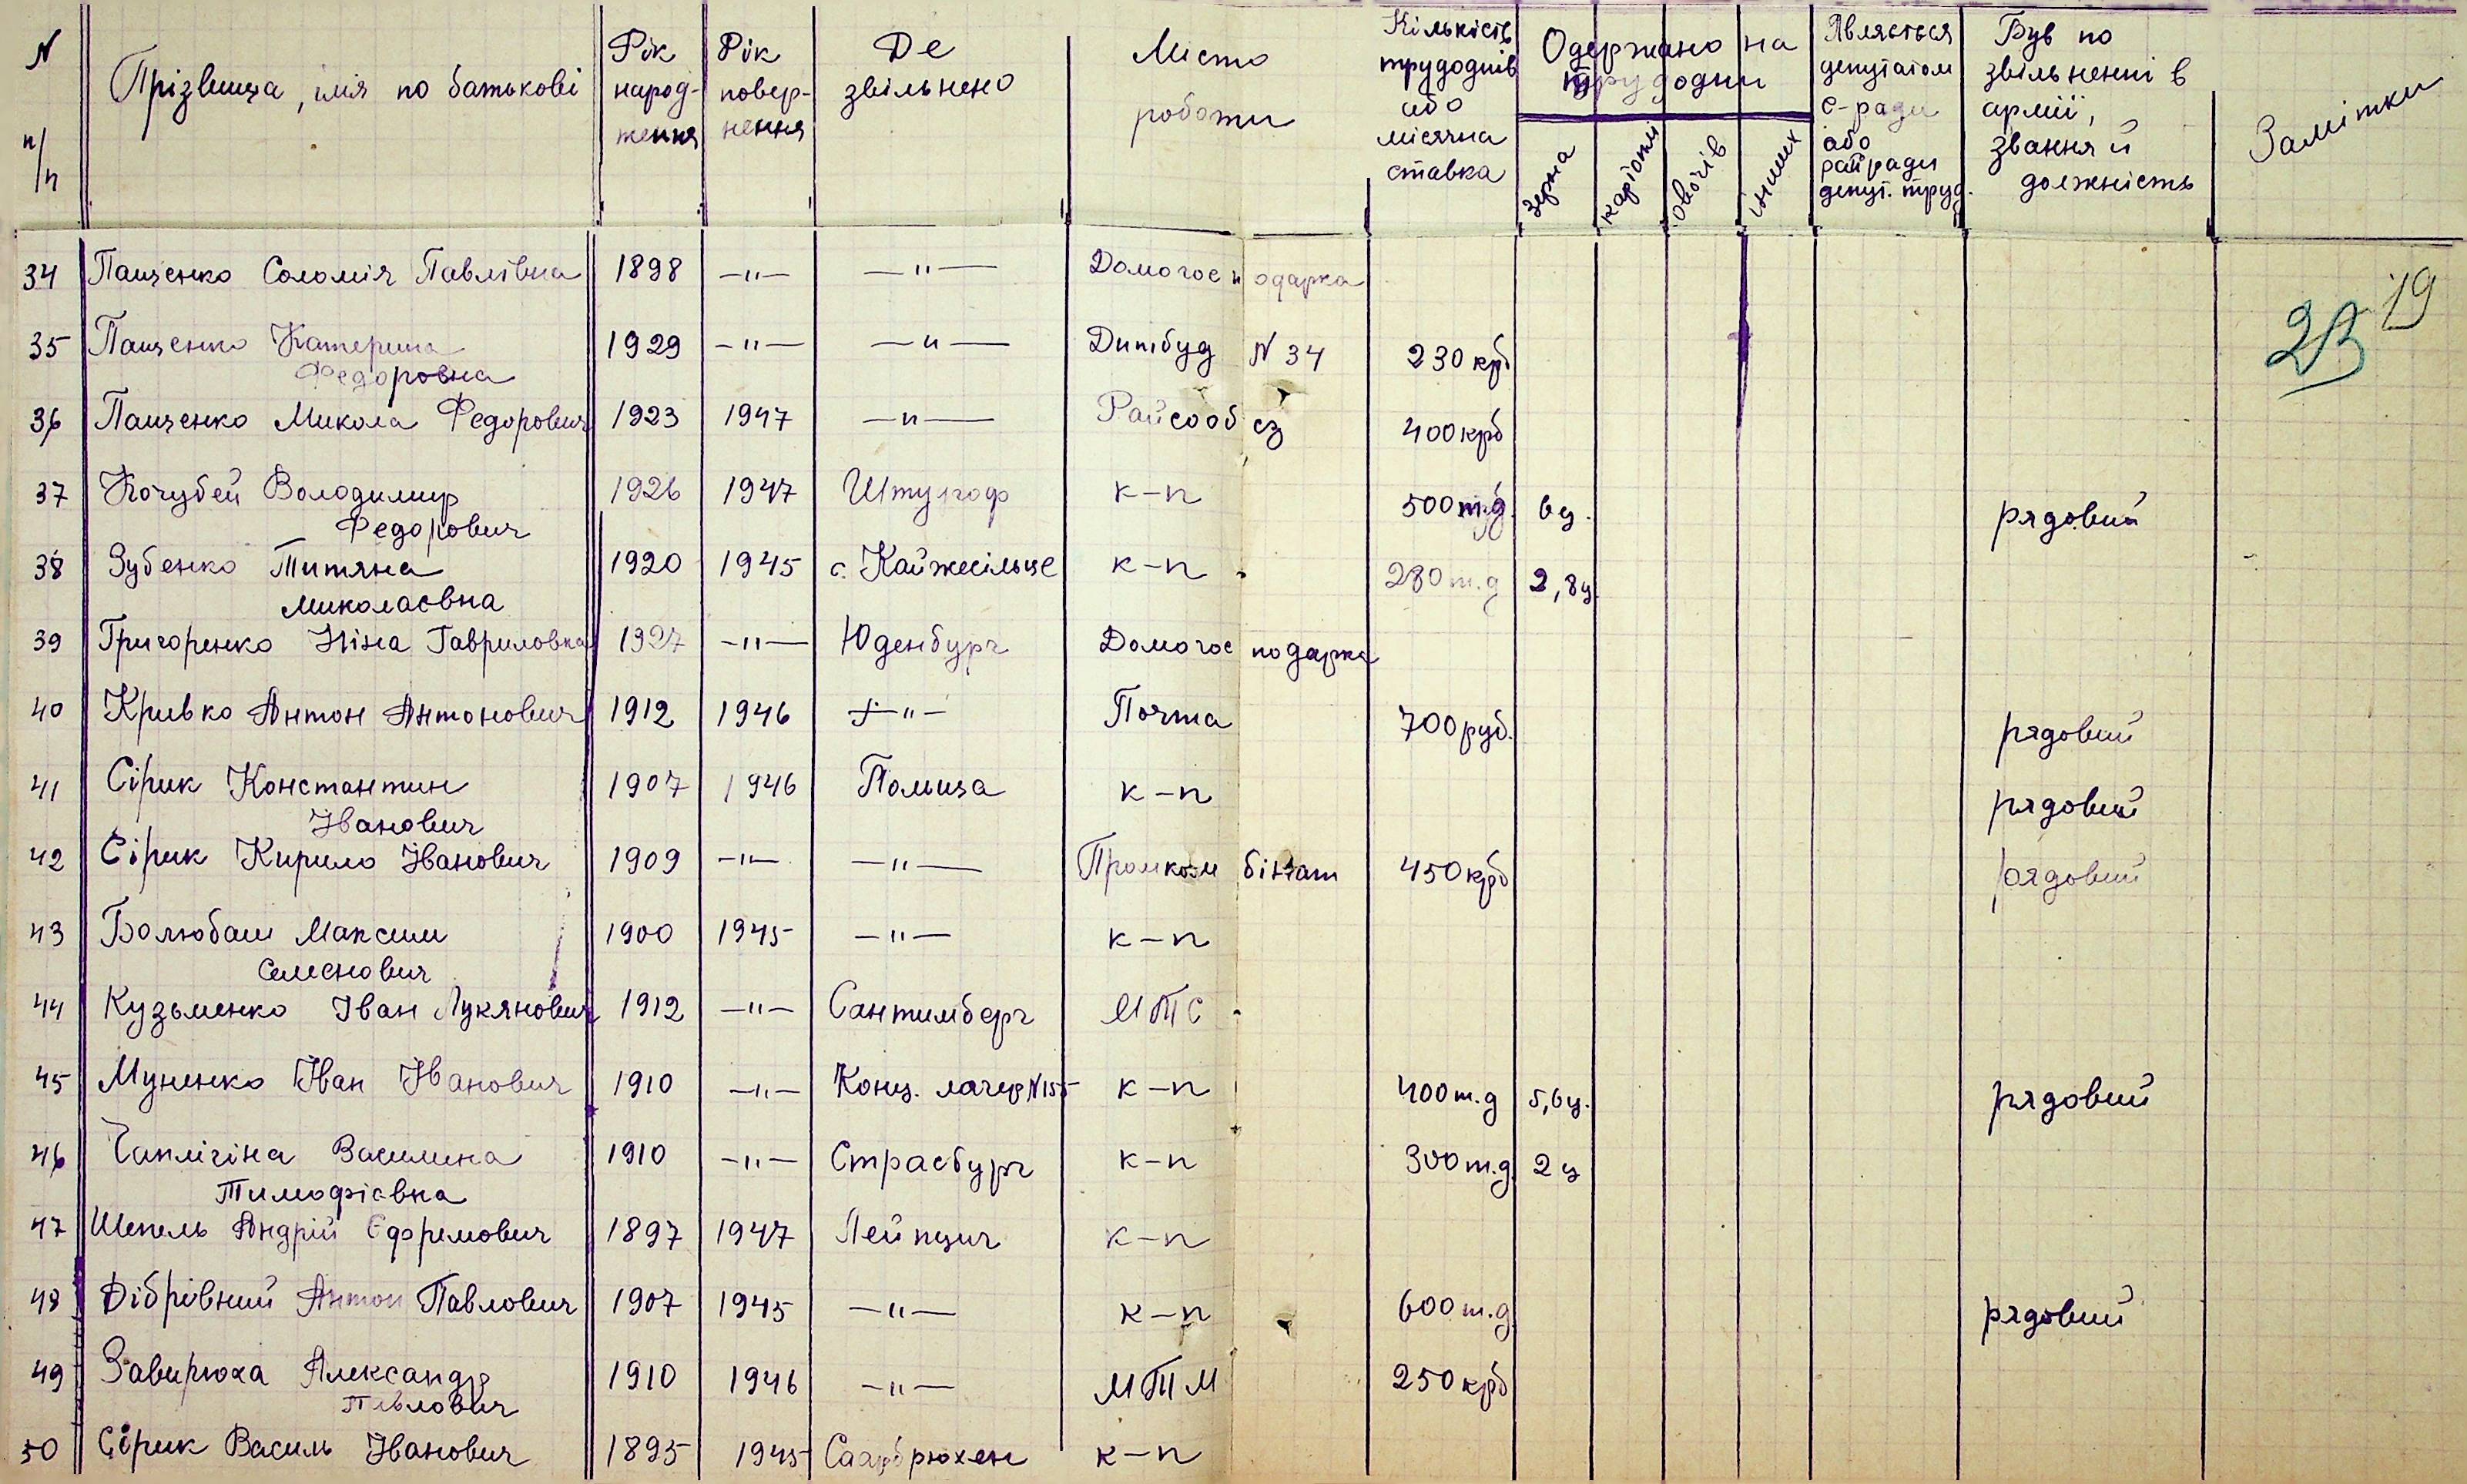 N п/п | Прізвища, імя по батькові | Рік народження | Рік повернення | Де звільнено | Місто роботи | Кількість трудоднів або місячна ставка | Одержано на трудодни: зерна | картоплі | овочів | інших | Являється депутатом с-ради або райради депут. труд. | Був по звільненні в армії, звання й должність | Замітки
34 Пащенко Соломія Павлівна 1898 —"— —"— Домогосподарка
19
23
35 Пащенко Катерина Федоровна 1929 —"— —"— Дитбуд N 34 230 крб
36 Пащенко Микола Федорович 1923 1947 —"— Райсобез 400 крб
37 Кочубей Володимир Федорович 1926 1947 к-п 500 т.д. 6ц. рядовий
38 Зубенко Титяна Миколаєвна 1920 1945 с. Кайжесільце к-п 280 т.д 2,8ц.
39 Григоренко Ніна Гавриловна 1927 —"— Юденбург Домогосподарка
40 Кривко Антон Антонович 1912 1946 —"— Почта 700 руб. рядовий
41 Сірик Константин Іванович 1907 1946 Польща к-п рядовий
42 Сірик Кирило Іванович 1909 —"— —"— Промкомбінат 450 крб рядовий
43 Болюбаш Максим Семенович 1900 1945 —"— к-п
44 Кузьменко Іван Лукянович 1912 —"— Сантимберг МТС
45 Муненко Іван Іванович 1910 —"— Конц. лагер N155 к-п 400 т.д 5,6ц. рядовий
46 Чаплігіна Василина Тимофієвна 1910 —"— Страсбург к-п 300 т.д. 2 ц
47 Шепель Андрій Єфремович 1897 1947 Лейпциг к-п
48 Дібрівний Антон Павлович 1907 1945 —"— к-п 600 т.д. рядовий
49 Завирюха Александр Павлович 1910 1946 —"— МТМ 250 крб
50 Сірик Василь Іванович 1895 1945 Саарбрюхен к-п